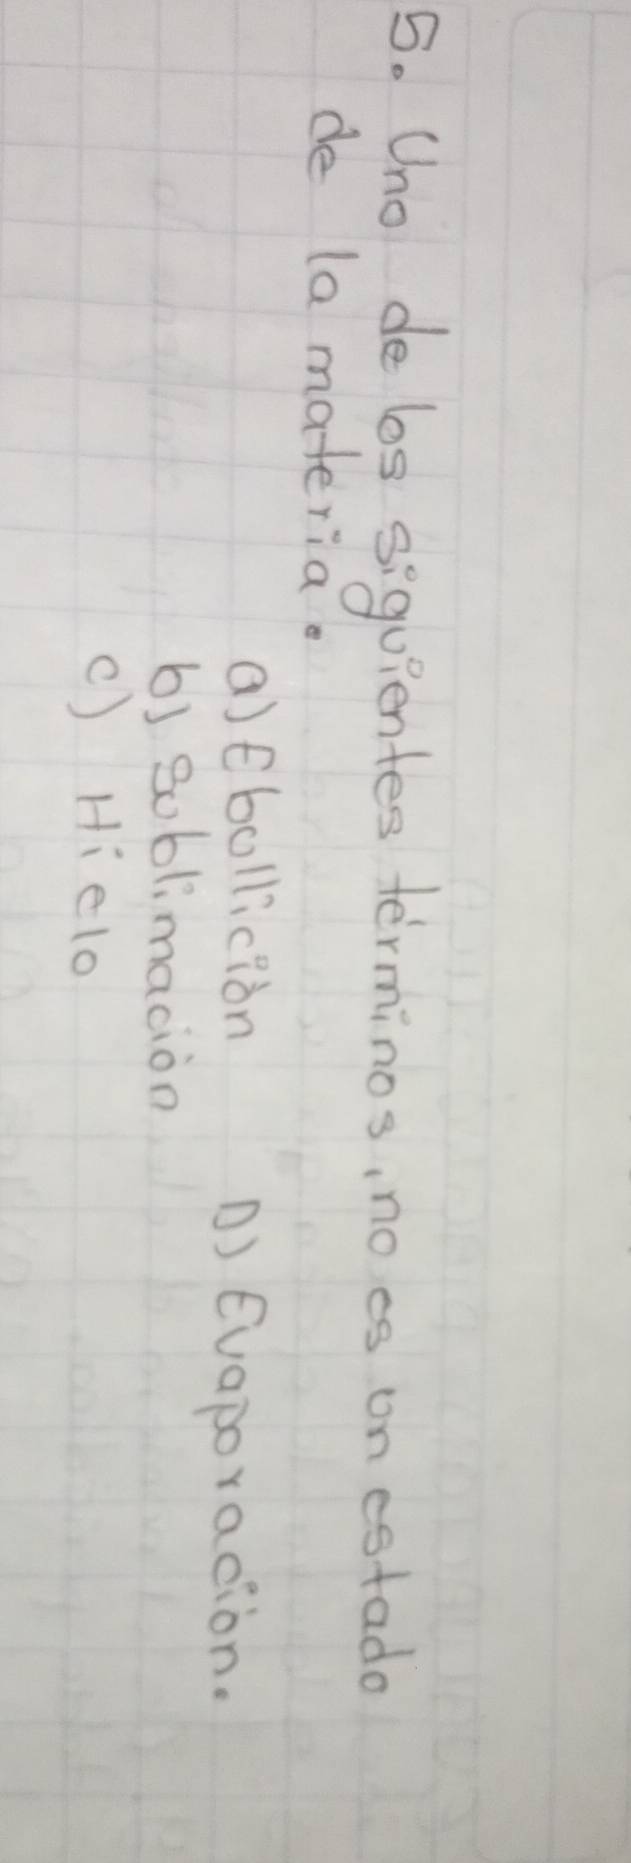 5. Uno de los siguientes términos, no es un estado
de la materia.
a) Ebullición D) Evaporación.
b) Sublimación
c) Hielo